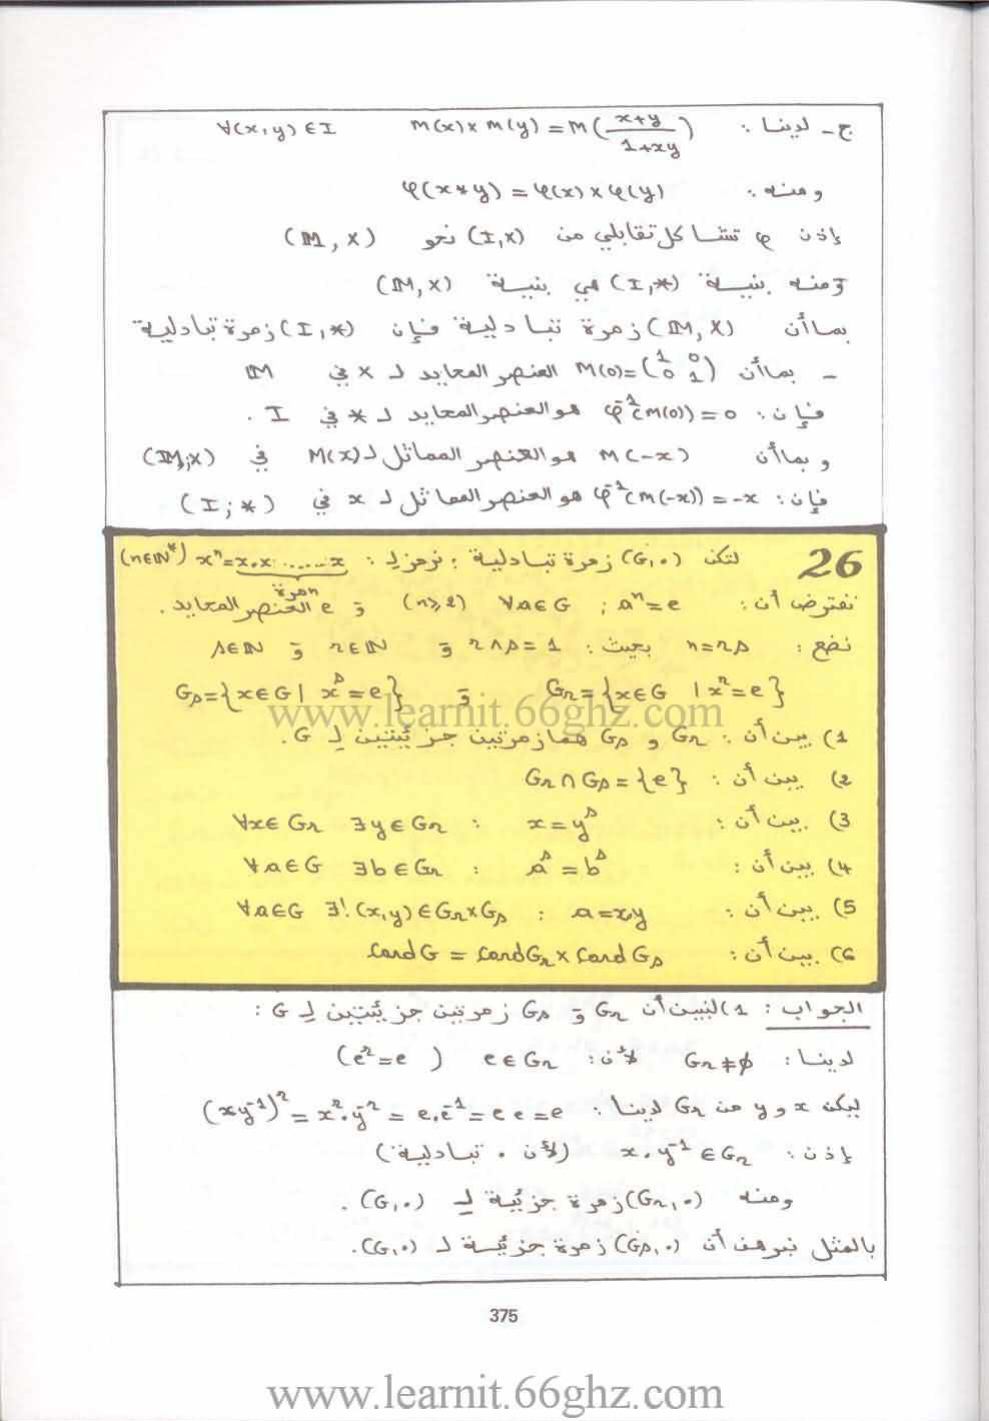 ج - لدينا : M(x) x M(y) = M(\frac{x+y}{1+xy}) ∀(x,y) ∈ I
ومنه : φ(x*y) = φ(x) x φ(y)
إذن φ تشاكل تقابلي من (I,x) نحو (M,x)
ومنه بنية (I,*) هي بنية (M,x)
بما أن (M,x) زمرة تبادلية فإن (I,*) زمرة تبادلية
- بما أن M(0) = \begin{pmatrix} 1 & 0 \\ 0 & 1 \end{pmatrix} العنصر المحايد لـ x في M
فإن : φ^{-1}(M(0)) = 0 هو العنصر المحايد لـ * في I .
و بما أن M(-x) هو العنصر المماثل لـ M(x) في (M;x)
فإن : φ^{-1}(M(-x)) = -x هو العنصر المماثل لـ x في (I;*)
26 لتكن (G,.) زمرة تبادلية ; نرمز لـ : x^n = x.x. ...... x (n∈ℕ*)
n مرة
نفترض أن : ∀a∈G ; a^n = e (n≥2) و e العنصر المحايد .
نضع : n=rs بحيث : r∧s=1 و r∈ℕ و s∈ℕ
G_r = {x∈G | x^r = e} و G_s = {x∈G | x^s = e}
www.learnit.66ghz.com
1) بين أن : G_r و G_s هما زمرتين جزئيتين لـ G.
2) بين أن : G_r ∩ G_s = {e}
3) بين أن : x = y^s : ∀x∈G_r ∃y∈G_r
4) بين أن : a^s = b^s : ∀a∈G ∃b∈G_r
5) بين أن : a = x.y : ∀a∈G ∃!(x,y)∈G_r×G_s
6) بين أن : Card G = Card G_r × Card G_s
الجواب : 1) لنبين أن G_r و G_s زمرتين جزئيتين لـ G :
لدينا : G_r ≠ ∅ لأن : e∈G_r (e^r = e)
ليكن x و y من G_r لدينا : (xy^{-1})^r = x^r.y^{-r} = e.e^{-1} = e e = e
إذن : x.y^{-1} ∈ G_r (لأن . تبادلية)
ومنه (G_r,.) زمرة جزئية لـ (G,.) .
بالمثل نبرهن أن (G_s,.) زمرة جزئية لـ (G,.).
375
www.learnit.66ghz.com